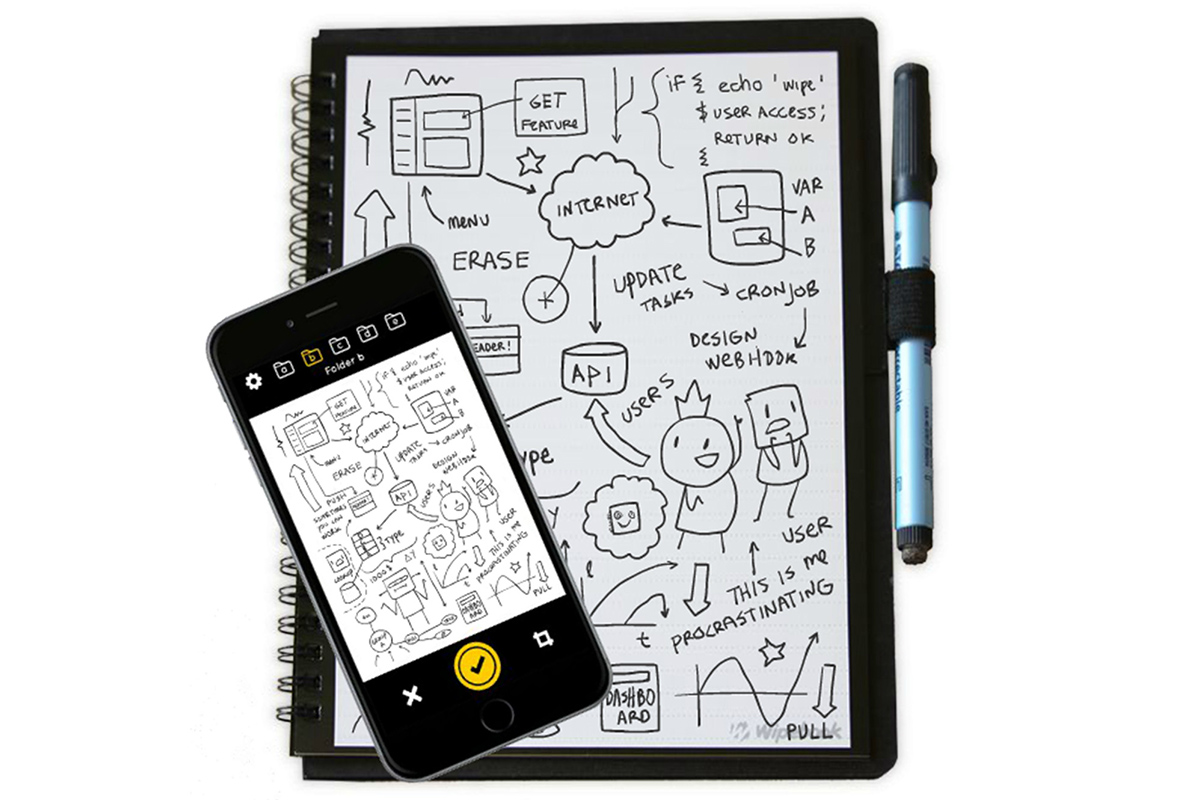 if { echo 'wipe'
$ USER ACCESS;
RETURN OK
}
GET
FEATURE
INTERNET
VAR
A
B
MENU
ERASE
UPDATE
TASKS
CRONJOB
EADER!
DESIGN
WEBHOOK
API
USERS
YPE
Y
USER
THIS IS ME
PROCRASTINATING
t
DASHBO
ARD
PULL
Wipebook
a
b
c
d
e
Folder b
if { echo 'wipe'
$ USER ACCESS;
RETURN OK
GET
FEATURE
INTERNET
VAR
A
B
MENU
ERASE
UPDATE
TASKS
CRONJOB
DESIGN
WEBHOOK
API
USERS
PUSH
YOU CAN
WORK
TYPE
USER
THIS IS ME
PROCRASTINATING
t
DASHBO
ARD
PULL